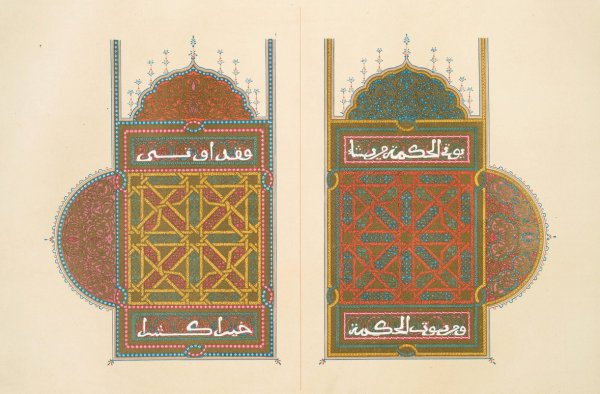 يوتى الحكمة من يشا
ومن يوت الحكمة
فقد اوتى
خيرا كثيرا